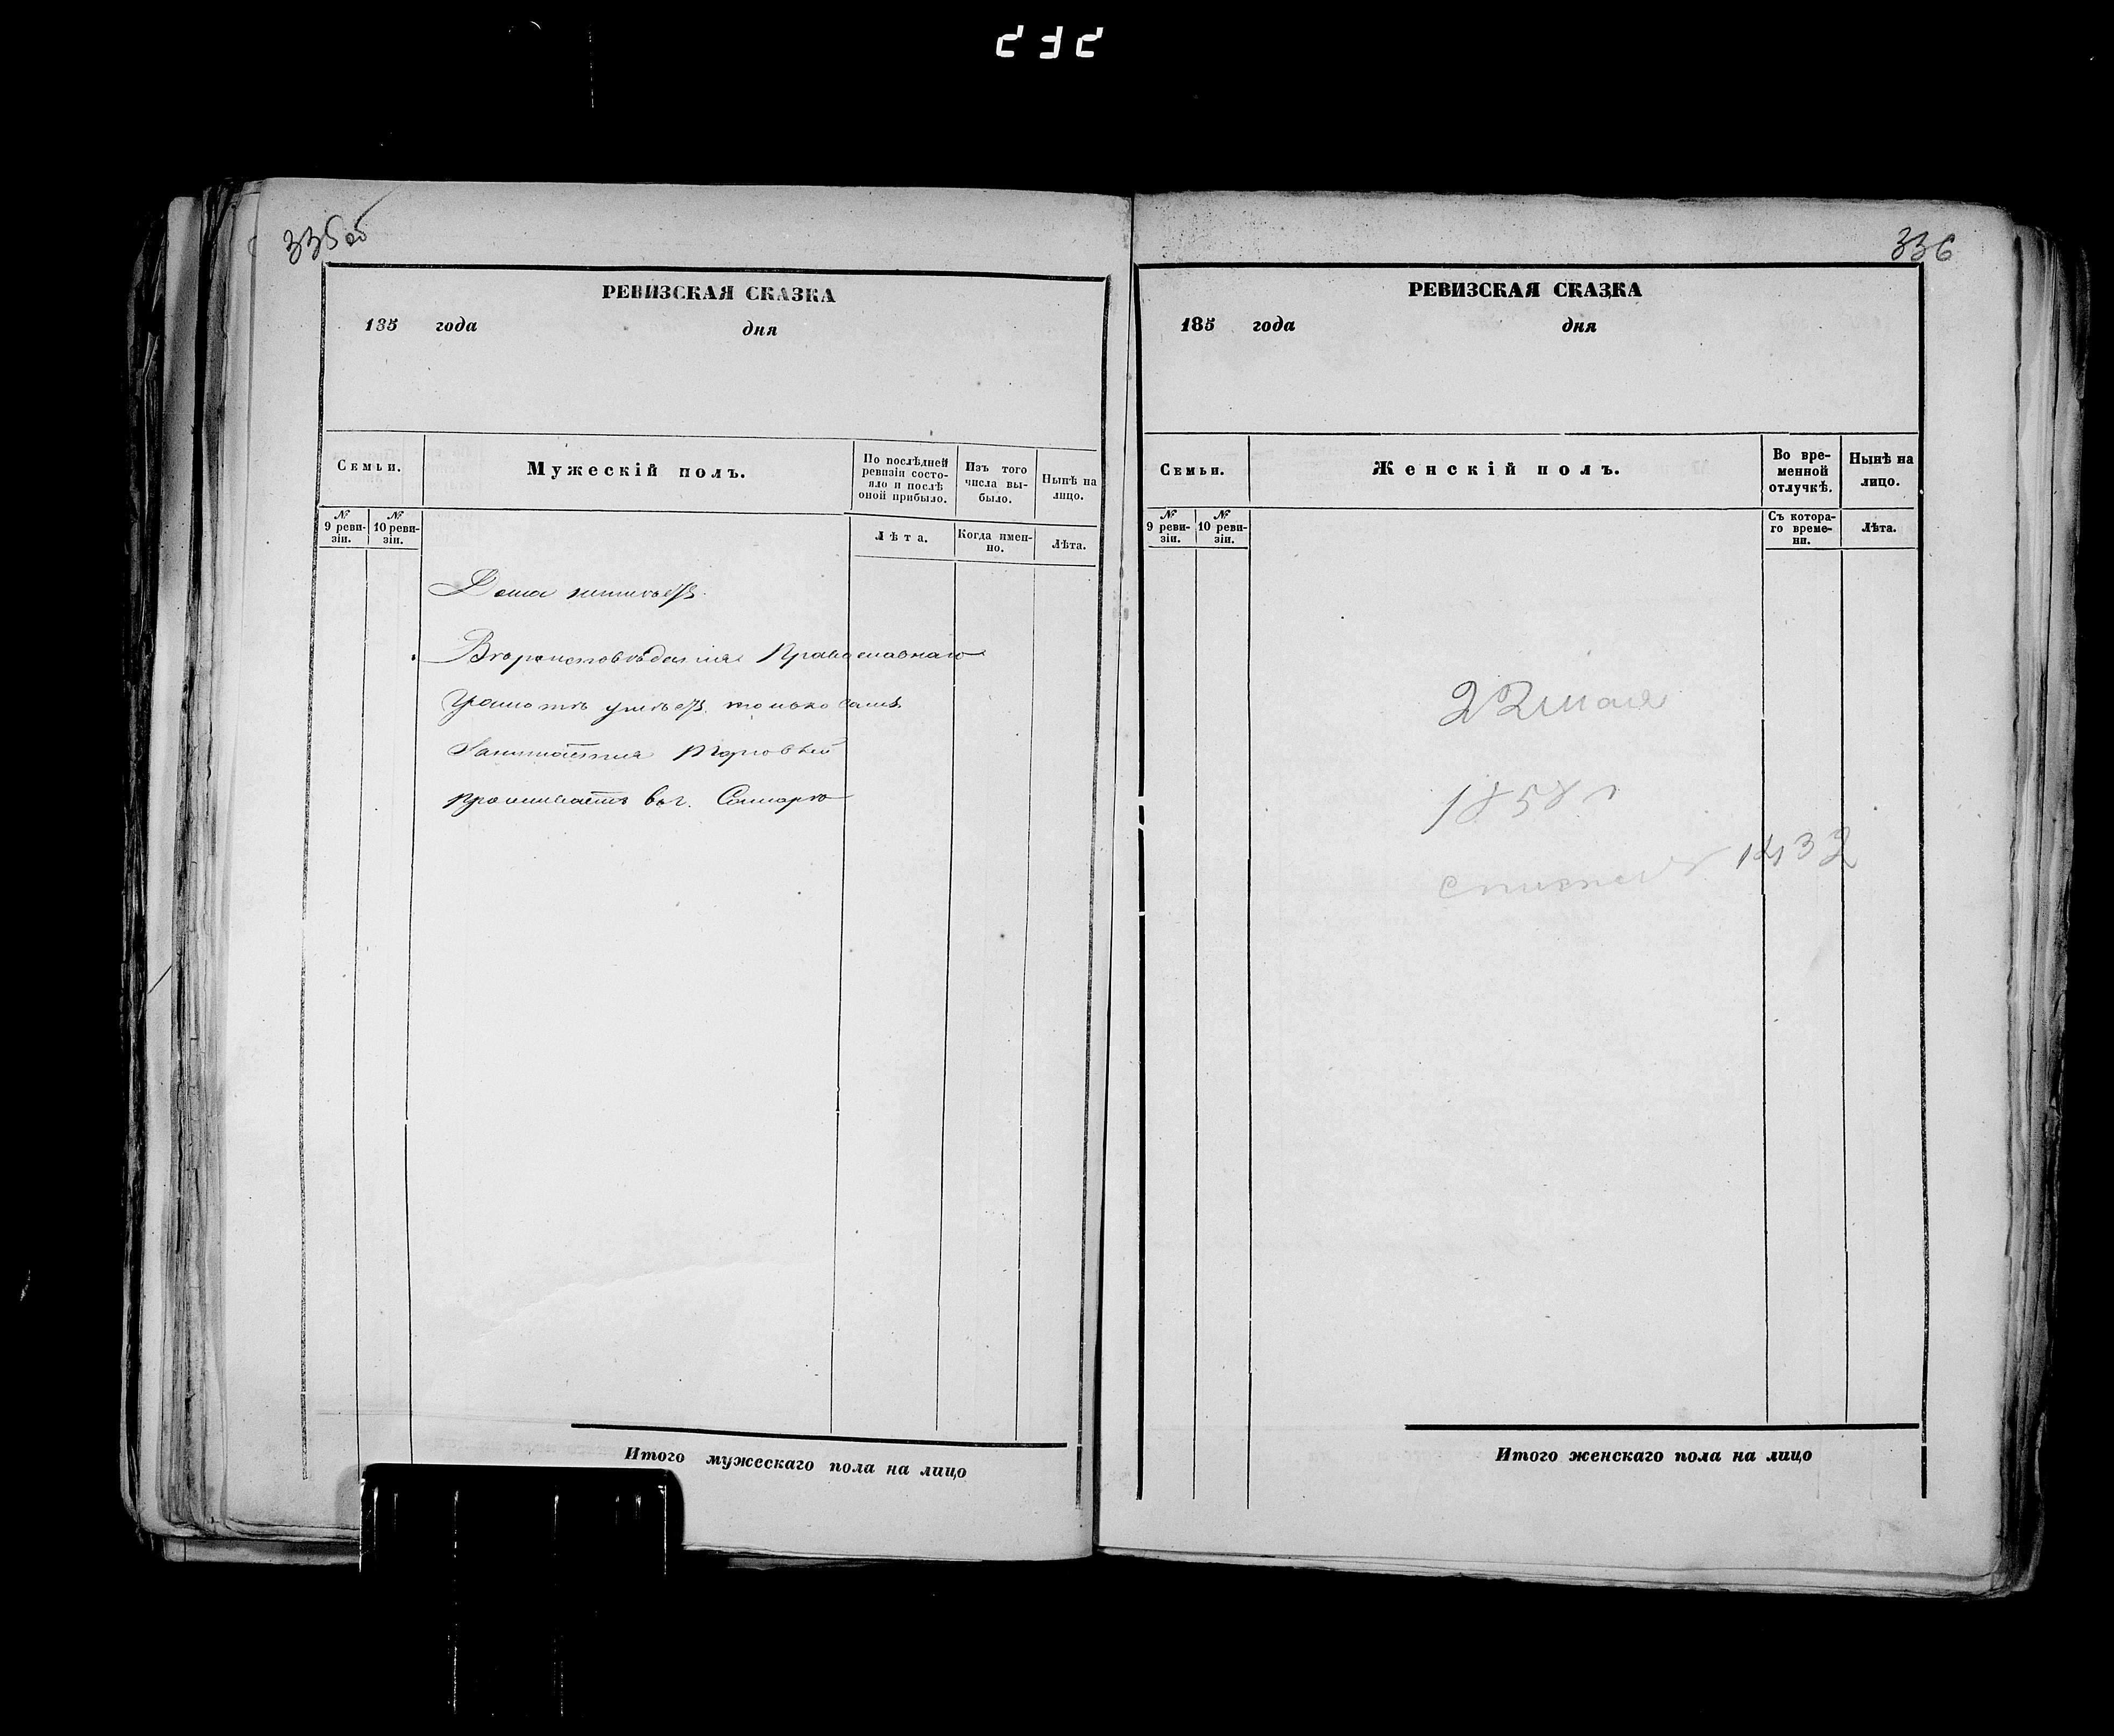 335об
РЕВИЗСКАЯ СКАЗКА
185 года дня
Семьи.
Мужескій полъ.
По послѣдней ревизіи состо-
яло и послѣ
оной прибыло.
Изъ того
числа вы-
было.
Нынѣ на
лицо.
№ 9 реви-
зіи.
№ 10 реви-
зіи.
Лѣта.
Когда имен-
но.
Лѣта.
Дома неимѣетъ.
Вѣроисповѣданія Православнаго
Грамотѣ умѣетъ только самъ
Занимается Торговлей
проживаетъ въ г. Самарѣ
Итого мужескаго пола на лицо
336
РЕВИЗСКАЯ СКАЗКА
185 года дня
Семьи.
Женскій полъ.
Во вре-
менной
отлучкѣ.
Нынѣ на
лицо.
№ 9 реви-
зіи.
№ 10 реви-
зіи.
Съ котора-
го време-
ни.
Лѣта.
22 мая
1858 г
1432
Итого женскаго пола на лицо